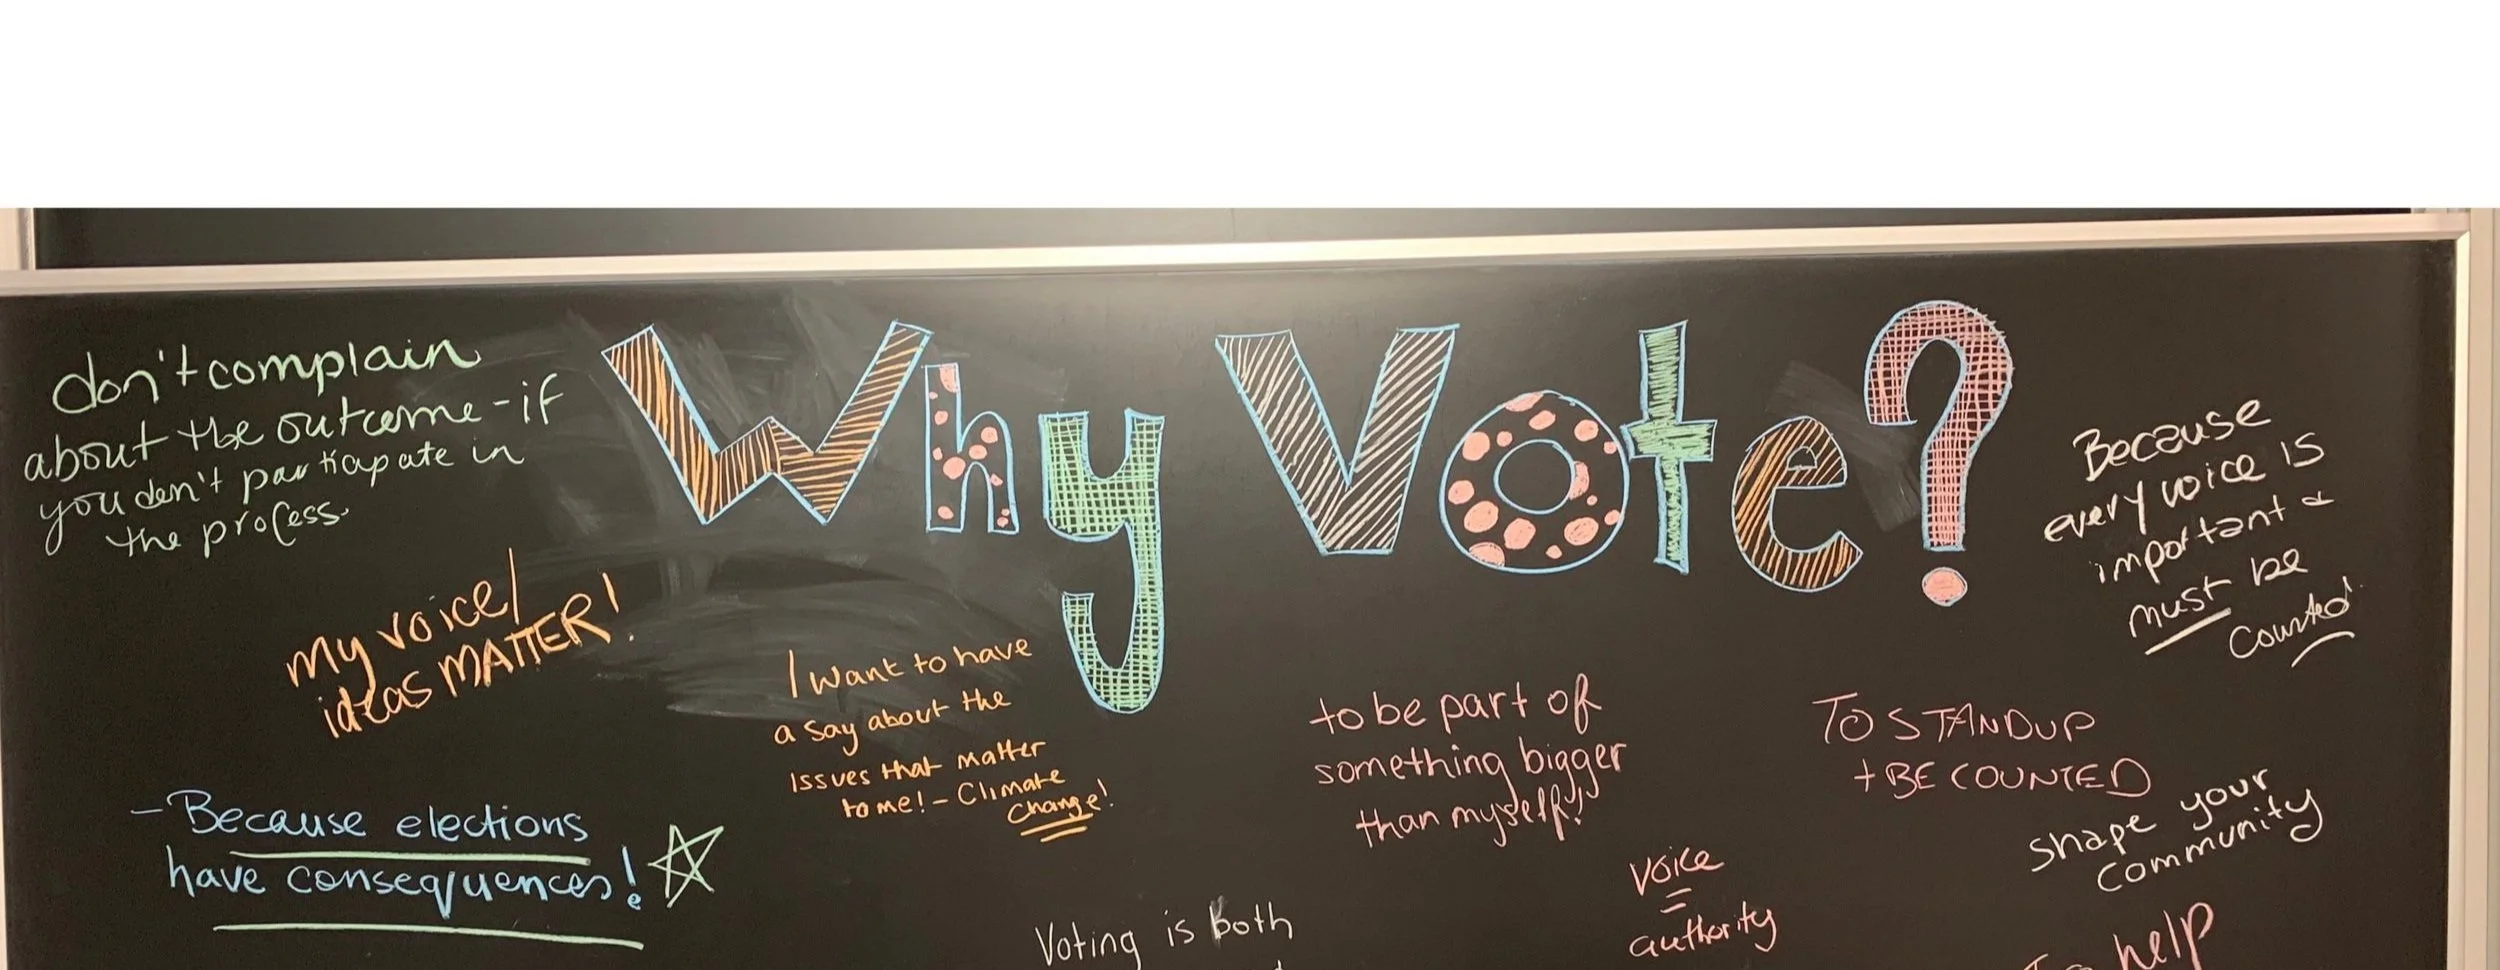 Why Vote?
don't complain
about the outcome - if
you don't particapate in
the process.
my voice/
ideas MATTER!
- Because elections
have consequences!
I want to have
a say about the
Issues that matter
to me! - Climate
Change!
to be part of
something bigger
than myself!
Voting is both
voice
=
authority
Because
every voice is
important &
must be
counted.
TO STAND UP
+ BE COUNTED
shape your
community
To help